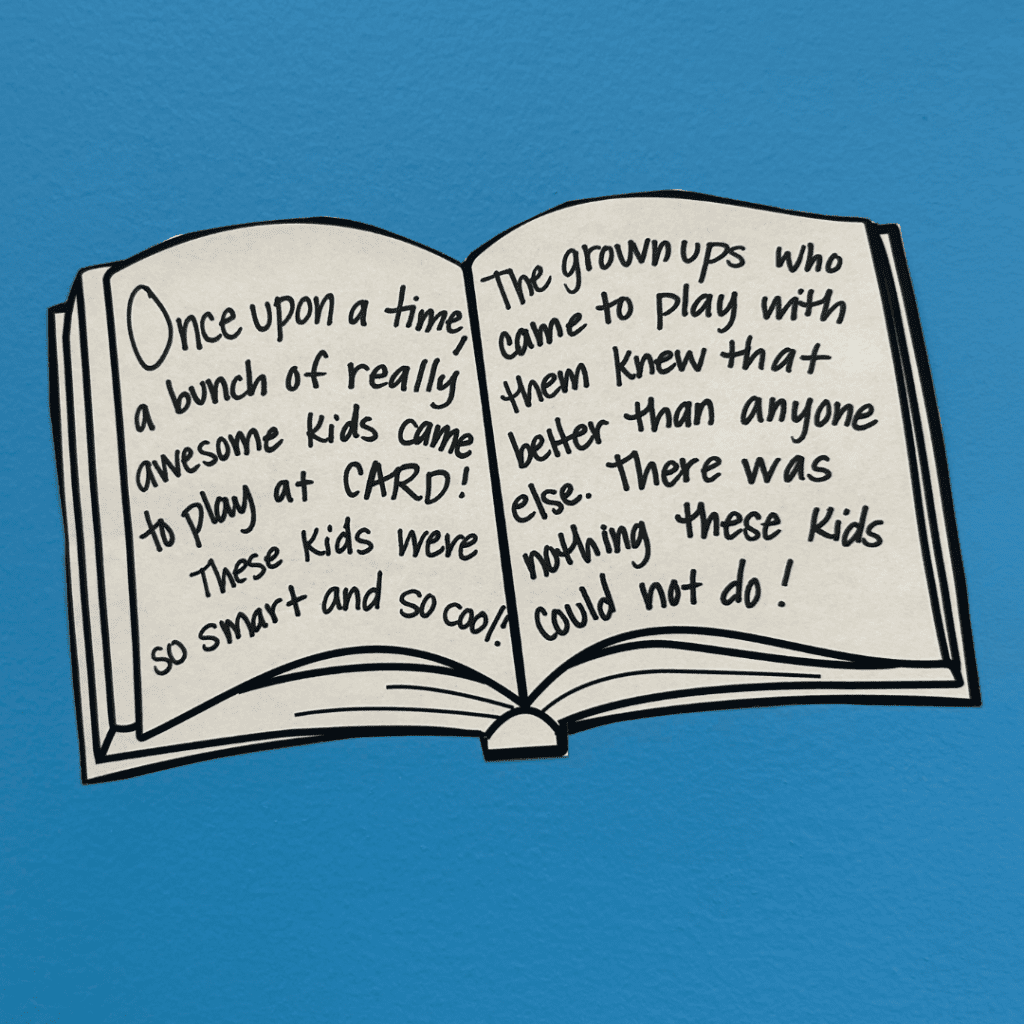 Once upon a time,
a bunch of really
awesome kids came
to play at CARD!
These kids were
so smart and so cool!
The grown ups who
came to play with
them knew that
better than anyone
else. There was
nothing these kids
could not do!